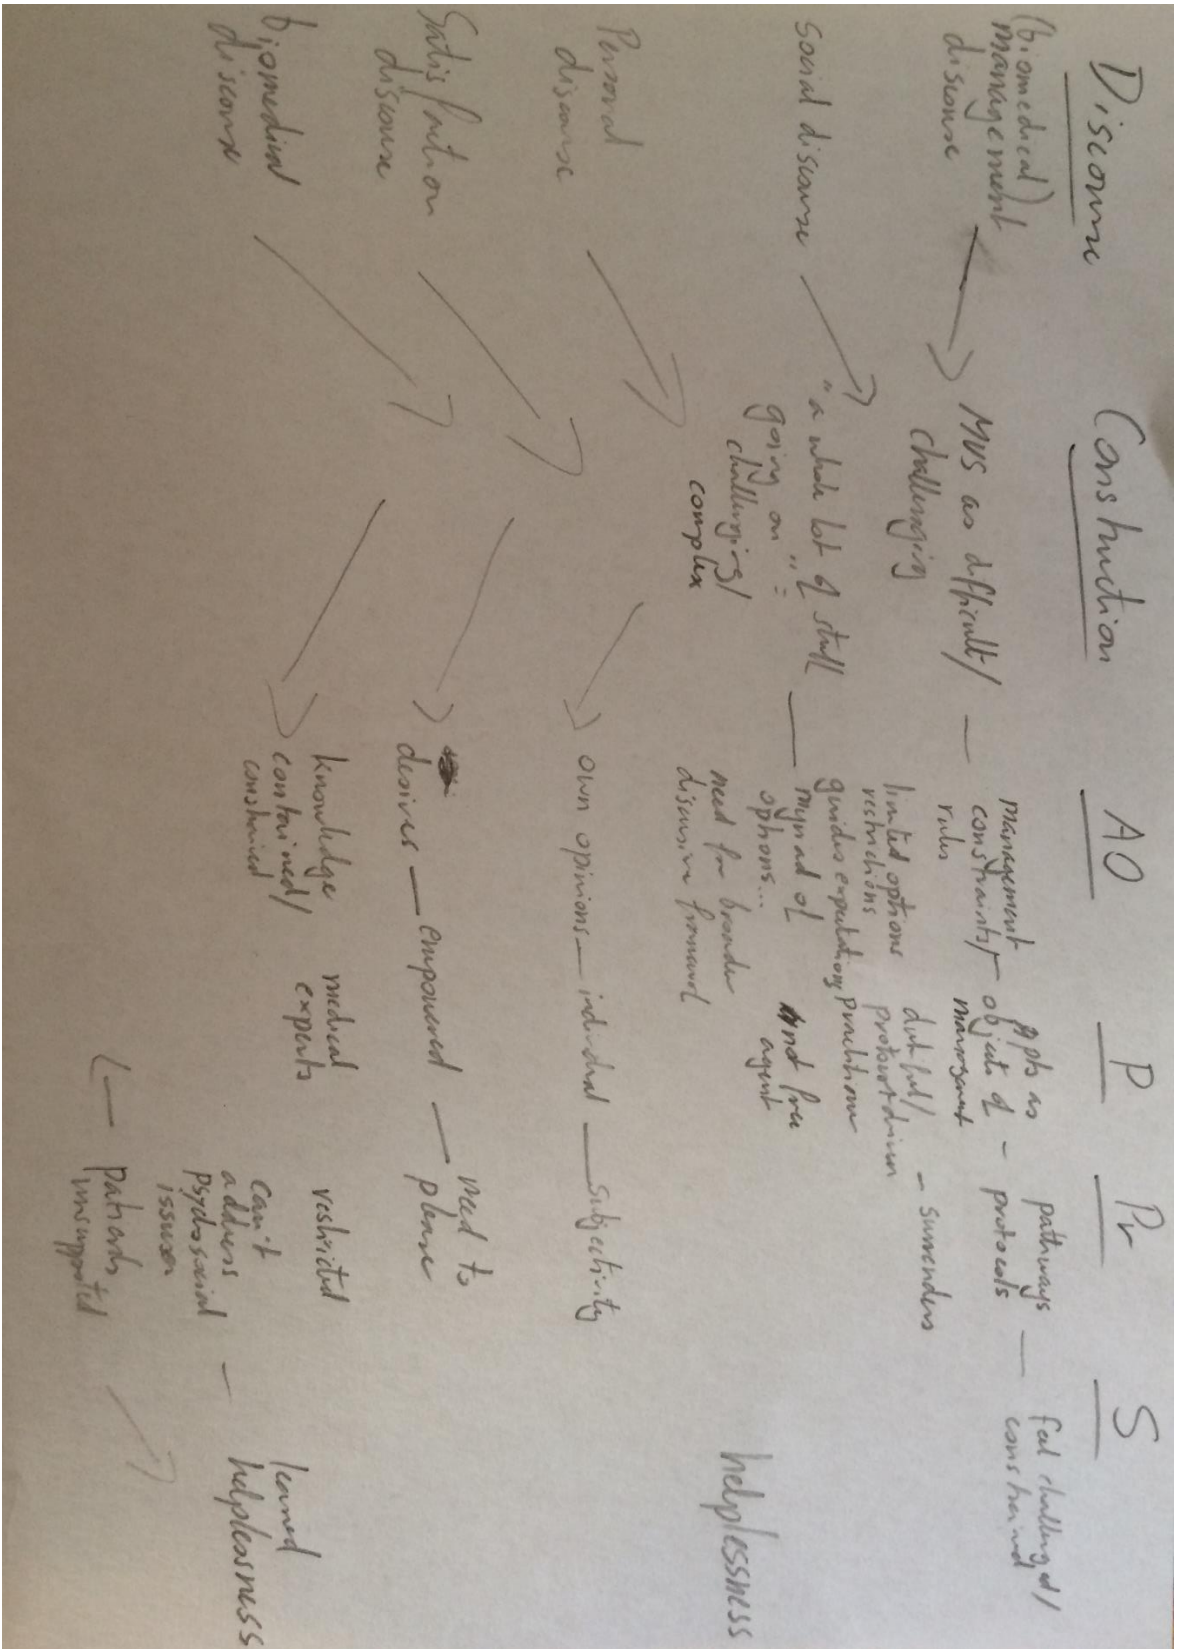 Discourse
Construction
AO
P
Pr
S
(biomedical)
management
discourse
MUS as difficult/
challenging
management
constraints/
rules
ppts as
objects of
management
pathways
protocols
feel challenged/
constrained
limited options
restrictions
guides expectations
dutiful/
protocol driven
practitioner
surrenders
social discourse
"a whole lot of stuff
going on" =
challenging/
complex
myriad of
options...
need for broader
discursive framework
not free
agent
helplessness
Personal
discourse
own opinions
individual
subjectivity
Satisfaction
discourse
desires
empowered
need to
please
biomedical
discourse
knowledge
contained/
constrained
medical
experts
restricted
can't
address
psychosocial
issues
patients
unsupported
learned
helplessness